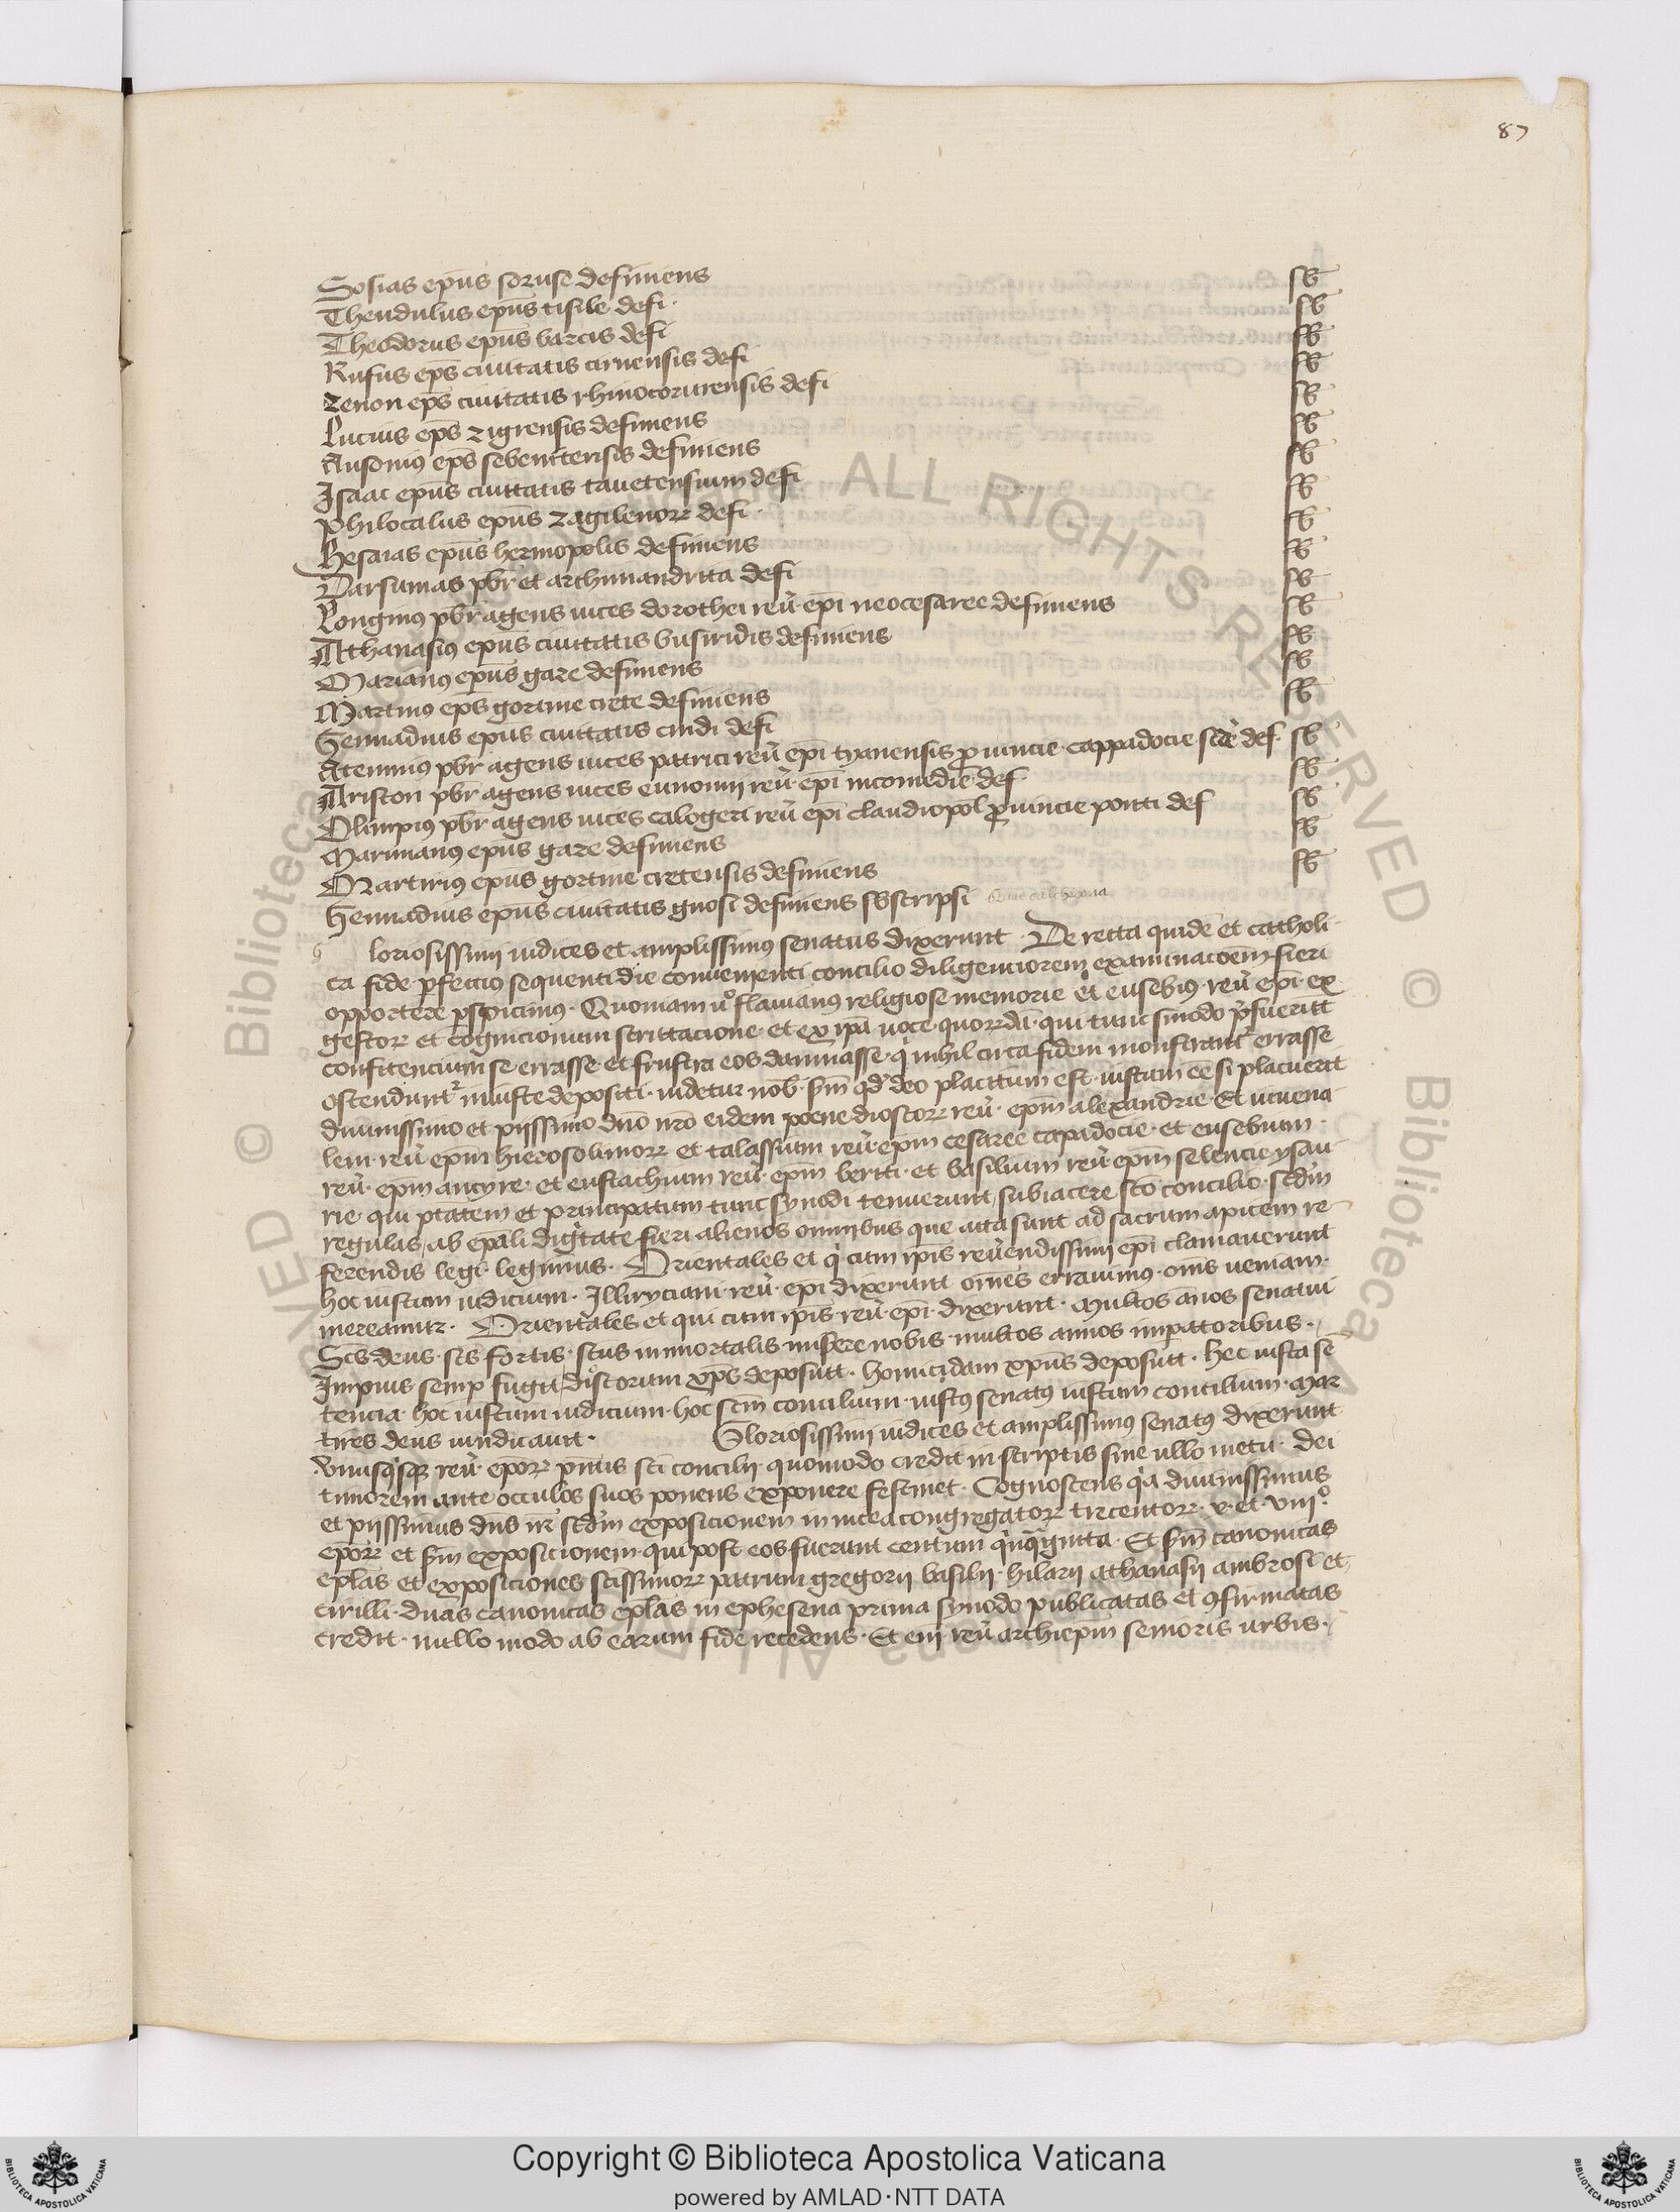 87
Sosias epus soruse definiens sb
Theudulus epus tisile defi· sb
Theodorus epus barcis defi sb
Rufus eps ciuitatis cirnensis defi sb
Zenon eps ciuitatis rhinocorurensis defi sb
Lucius eps zigrensis definiens sb
Ausonius eps sebenitensis definiens sb
Isaac epus ciuitatis tauetensium defi sb
Philocalus epus zagilenorꝝ defi· sb
Hesaias epus hermopolis definiens sb
Barsumas pbr et archimandrita defi sb
Longinus pbr agens uices dorothei reu· epi neocesaree definiens sb
Athanasius epus ciuitatis busiridis definiens sb
Marianus epus gaze definiens sb
Martinus eps gortine crete definiens sb
Gennadius epus ciuitatis cnidi defi
Atenmius pbr agens uices patrici reu· epi tyanensis ꝓuincie cappadocie scde def· sb
Ariston pbr agens uices eunomij reu· epi nicomedie def sb
Olimpius pbr agens uices calogeri reu epi claudiopol ꝓuincie ponti def sb
Marinianus epus gaze definiens sb
Martirius epus gortine cretensis definiens sb
Gennadius epus ciuitatis gnosi definiens sbscripsi
g loriosissimi iudices et amplissimus senatus dixerunt · De recta quidē et catholi-
ca fide ꝑfectius sequenti die conuenienti concilio diligenciorem examinacoēm fieri
opportere ꝑspicimus · Quoniam uͦ flauianus religiose memorie et eusebius· reu epi· ex
gestorꝝ et cognicionum scrittacione· et ex ipā uoce quorꝝdā· qui tunc sinodo pͥfuerūt
confitencium se errasse et frustra eos damnasse· qͥ nihil circa fidem monstrantͬ errasse
ostenduntͬ iniuste depositi· uidetur nob· scdm qd deo placitum est· iustum ee si placuerit
diuinissimo et piissimo dno nro eidem poene dioscorꝝ reu· epm alexandrie Et iuuena
lem· reu epm hierosolimorꝝ et talassium reu· epm cesaree capadocie· et eusebium·
reu· epm ancyre· et eustachium reu· epm beriti· et basilium reu· epm seleucie ysau
rie· qui ptatem et principatum tunc synodi tenuerunt subiacere sco concilio· scdm
regulas, ab epali dignitate fieri alienos omnibus que acta sunt ad sacrum apicem re-
ferendis legi· legimus· Orientales et qͥ cum ipis reuendissimi epi clamauerunt
hoc iustum iudicium· Illiryciani· reu· epi dixerunt omēs errauimus· oms ueniam·
mereamur· Orientales et qui cum ipis reu· epi· dixerunt· multos anos senatui
Scs deus· scs fortis· scus inmortalis miserere nobis· multos annos imperatoribus·
Impius semp fugit dioscorum xps deposuit· homicidam xpus deposuit· hec iusta sē-
tencia· hoc iustum iudicium· hoc scm concilium· iustus senatus iustum concilium· mar
tires deus iuridicauit· Gloriosissimi iudices et amplissimus senatus dixerunt
Vnusqͥsqꝫ reu· eporꝝ pntis sci concilii quomodo credit in scriptis sine ullo metu· dei
timorem ante occulos suos ponens exponere festinet· Cognoscens qa diuinissimus
et piissimus dns nr scdm exposicionem in nicea congregatorꝝ trecentorꝝ· x· et· viijͦ·
eporꝝ et scdm exposicionem· qui post eos fuerunt centum quīquaginta· Et scdm canonicas
eplas et exposiciones scissimorꝝ patrum gregorii basilii· hilarii athanasii ambrosi et
cirilli· duas canonicas eplas in ephesena prima synodo publicatas et ꝯfirmatas
credit· nullo modo ab earum fide recedens· Et eni reu archiepm senioris urbis·
© Biblioteca Apostolica Vaticana ALL RIGHTS RESERVED
Copyright © Biblioteca Apostolica Vaticana
powered by AMLAD·NTT DATA
BIBLIOTECA APOSTOLICA VATICANA
BIBLIOTECA APOSTOLICA VATICANA